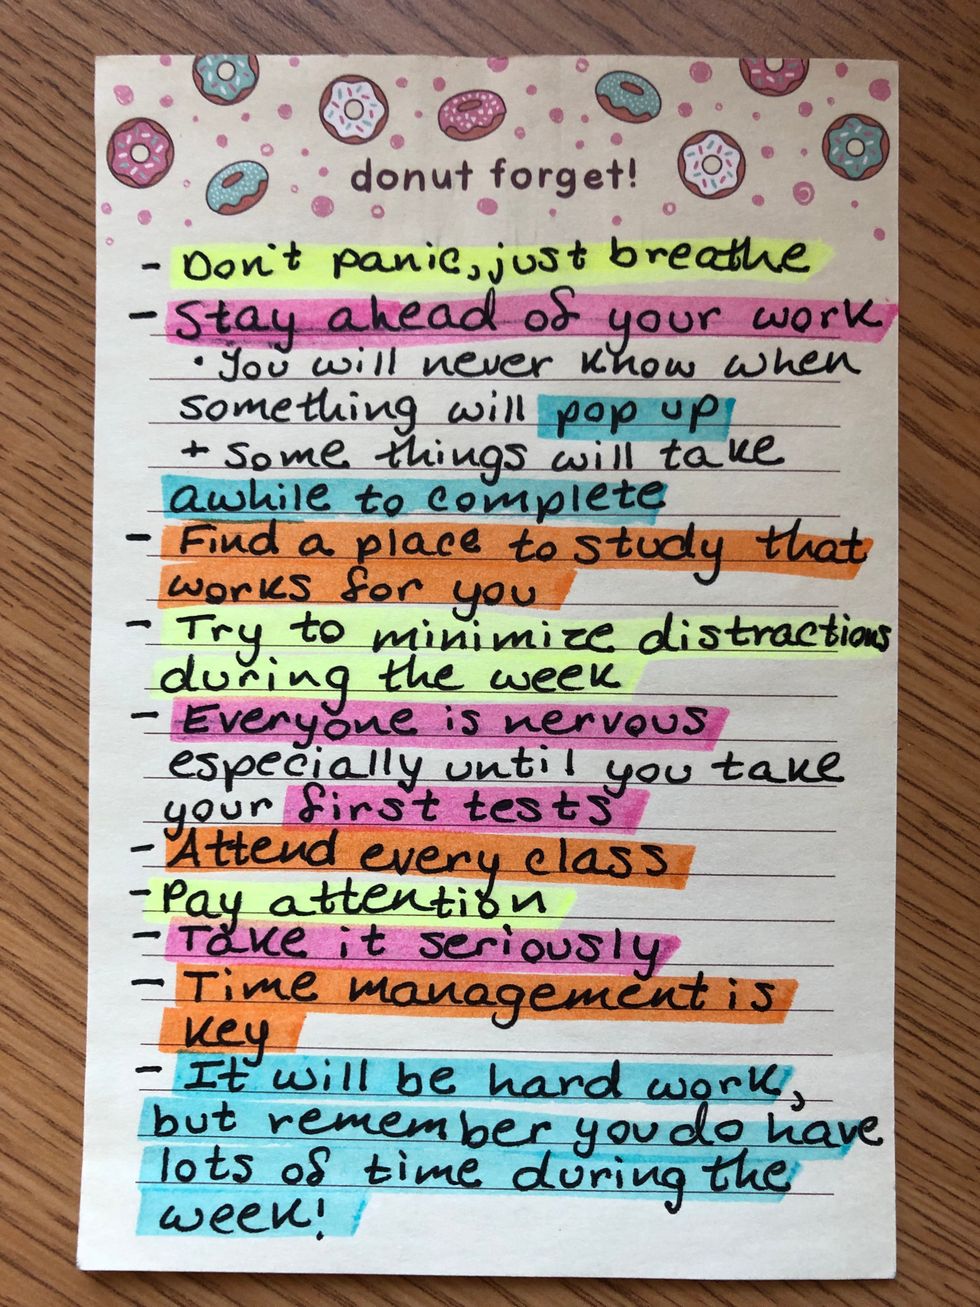 donut forget!
- Don't panic, just breathe
- Stay ahead of your work
• You will never know when
something will pop up
+ some things will take
awhile to complete
- Find a place to study that
works for you
- Try to minimize distractions
during the week
- Everyone is nervous
especially until you take
your first tests
- Attend every class
- Pay attention
- Take it seriously
- Time management is
key
- It will be hard work,
but remember you do have
lots of time during the
week!